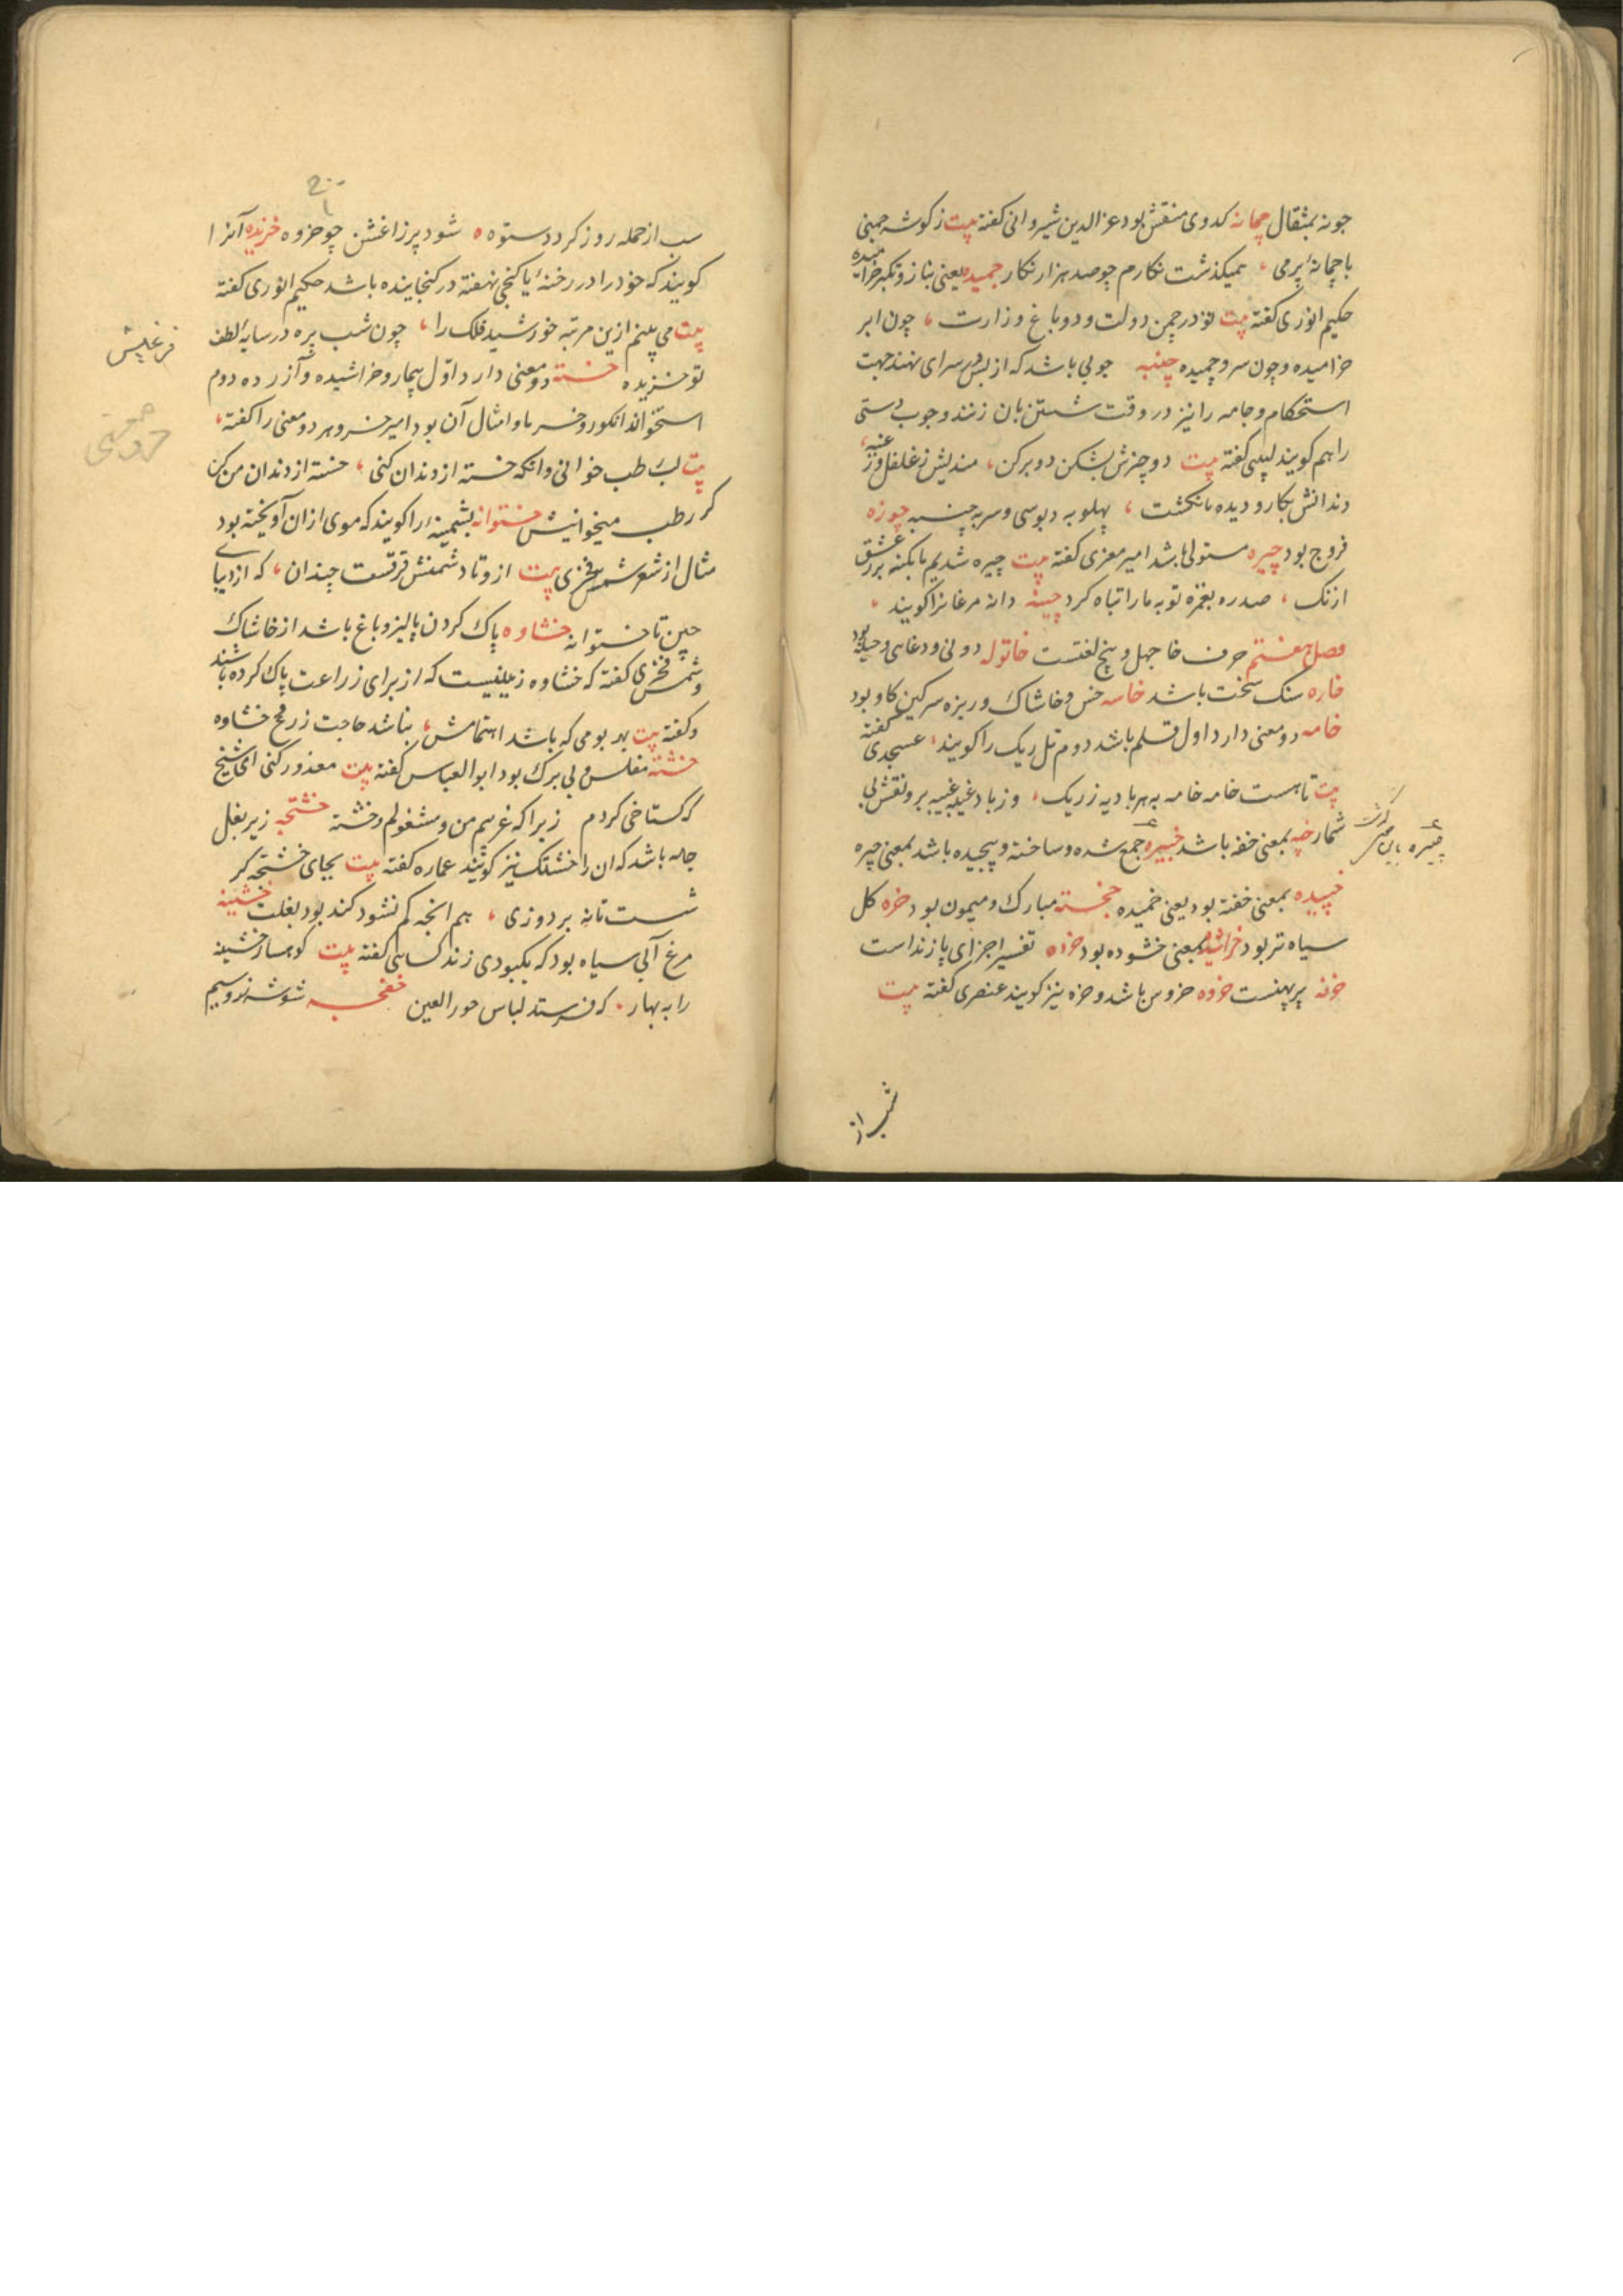 جونه بمثقال چمانه کدوی منقش بود عز الدین شیروانی کفته بیت ز کوشه چمنی
با چمانهٔ پر می ، همیکذشت نکارم چو صد هزار نکار چمیده یعنی بناز و تکبر خرامیده
حکیم انوری کفته بیت تو در چمن دولت و در باغ وزارت ، چون ابر
خرامیده و چون سرو چمیده چنبه چوبی باشد که از پس در سرای نهند جهت
استحکام و جامه را نیز در وقت شستن بان زنند و چوب دستی
را هم کویند لبیبی کفته بیت دو چزش بشکن دو برکن ، مندیش ز غلغل و ز غنبه ،
دندانش بکاز و دیده بانکشت ، پهلو به دبوسی و سر به چنبه چوزه
فروج بود چیره مستولی باشد امیر معزی کفته بیت چیره شدیم تا بکنه بر عشق
از نک ، صد ره بغمزه توبه ما را تباه کرد چینه دانه مرغانرا کویند ،
فصل هفتم حرف خا چهل و پنج لغتست خاتوله دونی و دغایی و حیله بود
خاره سنک سخت باشد خاسه خس و خاشاک و ریزه سرکین کاو بود
خامه دو معنی دارد اول قلم باشد دوم تل ریک را کویند ، عسجدی کفته
بیت تا هست خامه خامه به هر بادیه ز ریک ، وز باد غیبه غیبه برو نقش بی
شمار خپه بمعنی خفه باشد خبیره جمع شده و ساخته و پیچیده باشد بمعنی چیره
خپیده بمعنی خفته بود یعنی خمیده خجسته مبارک و میمون بود خره کل
سیاه تر بود خراشیده بمعنی خشوده بود خرده تفسیر اجزای پازند است
خرفه پرپهنست خروه خروس باشد و خره نیز کویند عنصری کفته بیت
شب از
شب از حمله روز کردد ستوه ه شود پر زاغش چو خروه خزیده آنرا
کویند که خود را در رخنهٔ یا کنجی نهفته در کنجاینده باشد حکیم انوری کفته
بیت می بینم ازین مرتبه خورشید فلک را ، چون شب پره در سایهٔ لطف
تو خزیده خسته دو معنی دارد اول بیمار و خراشیده و آزرده دوم
استخوان انکور و خرما و امثال آن بود امیر خسرو هر دو معنی را کفته ،
بیت لب رطب خوانی وانکه خسته از دندان کنی ، خسته از دندان من کن
کر رطب میخوانیش خستوانه پشمینهٔ را کویند که موی از ان آویخته بود
مثال از شعر شمس فخری بیت ازو تا دشمنش فرقست چندان ، که از دیبای
چین تا خستوانه خشاوه پاک کردن پالیز و باغ باشد از خاشاک
و شمس فخری کفته که خشاوه زمینیست که از برای زراعت پاک کرده باشند
و کفته بیت بهر بومی که باشد اهتمامش ، نباشد حاجت زرع خشاوه
خشته مفلس و بی برک بود ابو العباس کفته بیت معذور کنی ای شیخ
که کستاخی کردم زیرا که غریبم من و مشغولم و خشته خشتچه زیر بغل
جامه باشد که ان را خشتک نیز کویند عماره کفته بیت بجای خشتچه کر
شست نافه بردوزی ، هم انچه کم نشود کند بود بغلت خشینه
مرغ آبی سیاه بود که بکبودی زند کسایی کفته بیت کوهسار خشینه
را به بهار . که فرستد لباس حور العین خفچه شوشه زر و سیم